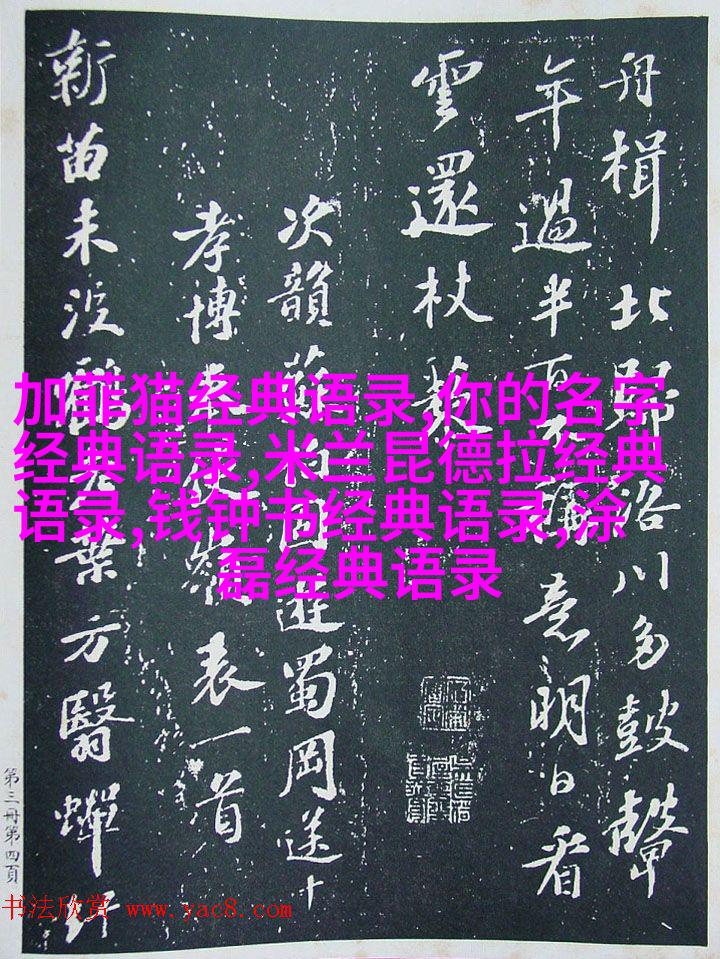 舟楫北歸洛川多鼓聲
年過半百不稱意明日看
雲還杖藜
次韻蘇伯固遊蜀岡送
孝博奉使嶺表一首
新苗未没鶴老葉方翳蟬
加菲猫经典语录,你的名字
经典语录,米兰昆德拉经典
语录,钱钟书经典语录,涂
磊经典语录
第三冊第四頁
书法欣赏 www.yac8.com